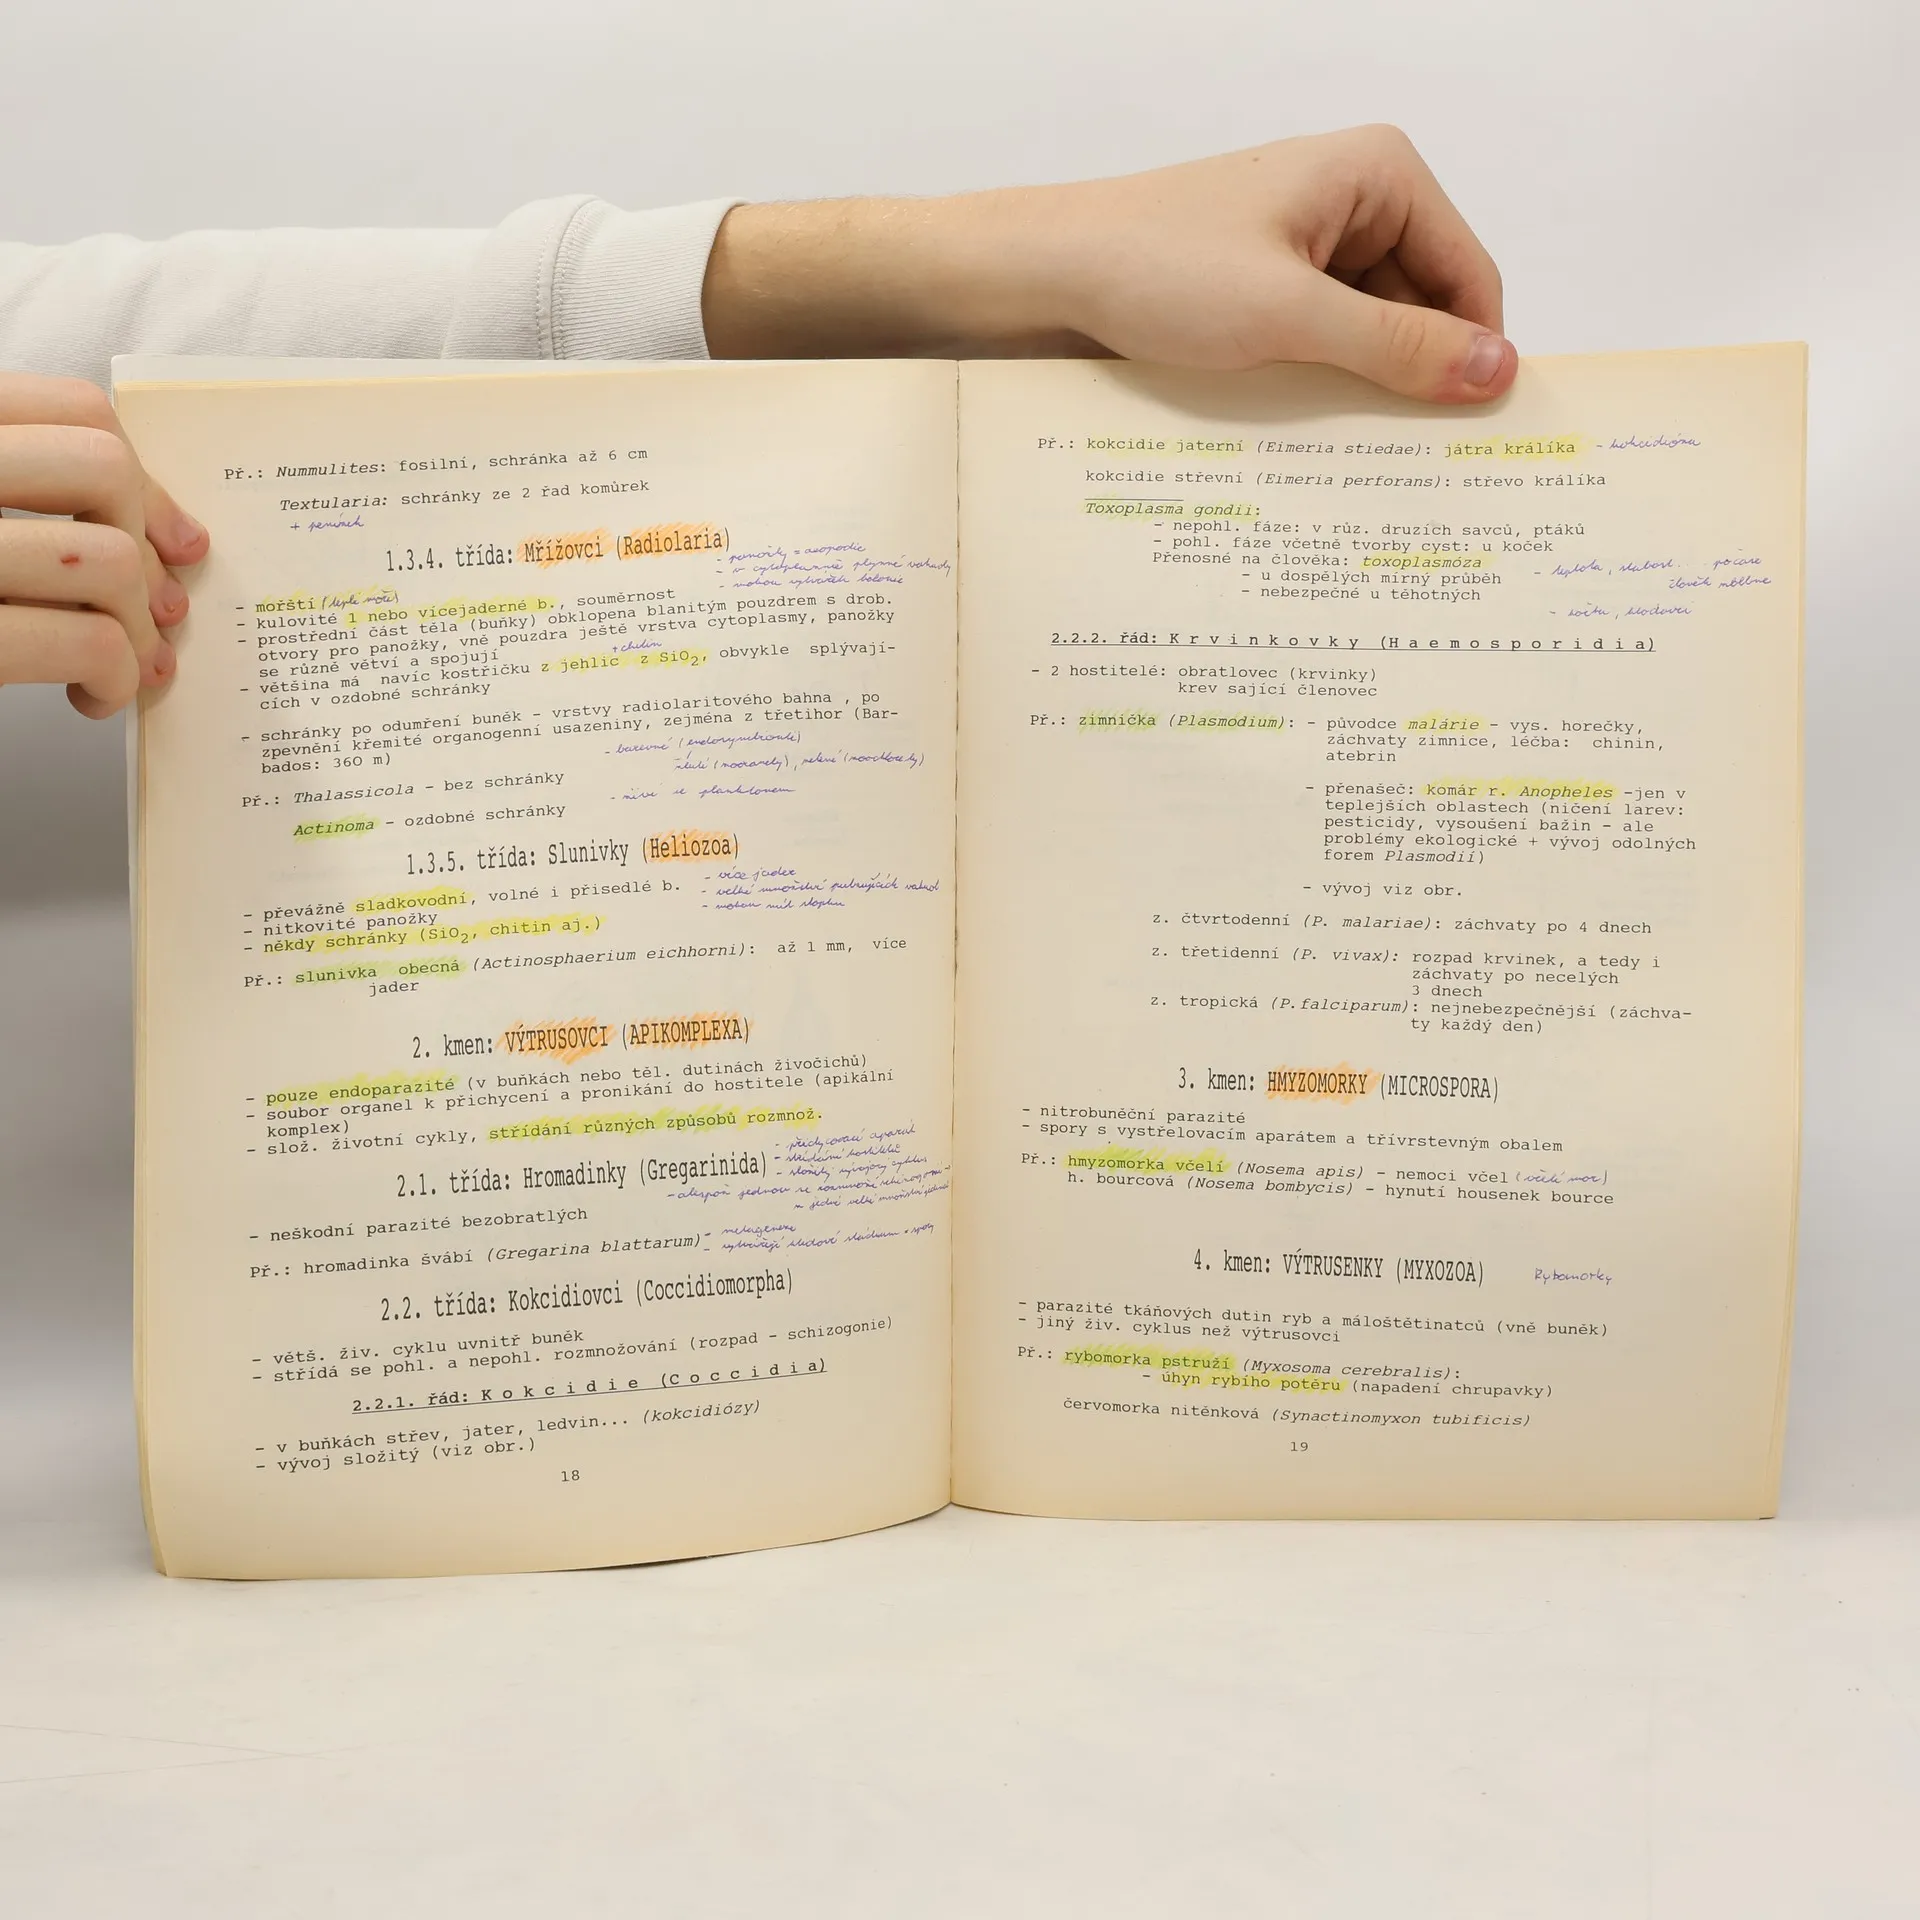 Př.: Nummulites: fosilní, schránka až 6 cm
Textularia: schránky ze 2 řad komůrek
1.3.4. třída: Mřížovci (Radiolaria)
- mořští (teplé moře)
- kulovité 1 nebo vícejaderné b., souměrnost
- prostřední část těla (buňky) obklopena blanitým pouzdrem s drob.
otvory pro panožky, vně pouzdra ještě vrstva cytoplasmy, panožky
se různě větví a spojují
+ chitin
- většina má navíc kostřičku z jehlic z SiO2, obvykle splývají-
cích v ozdobné schránky
- schránky po odumření buněk - vrstvy radiolaritového bahna , po
zpevnění křemité organogenní usazeniny, zejména z třetihor (Bar-
bados: 360 m)
- barevné (endosymbionti)
Př.: Thalassicola - bez schránky
- živí se planktonem
Actinoma - ozdobné schránky
1.3.5. třída: Slunivky (Heliozoa)
- více jader
- velké množství pulzujících vakuol
- převážně sladkovodní, volné i přisedlé b.
- nitkovité panožky
- někdy schránky (SiO2, chitin aj.)
Př.: slunivka obecná (Actinosphaerium eichhorni): až 1 mm, více
jader
2. kmen: VÝTRUSOVCI (APIKOMPLEXA)
- pouze endoparazité (v buňkách nebo těl. dutinách živočichů)
- soubor organel k přichycení a pronikání do hostitele (apikální
komplex)
- slož. životní cykly, střídání různých způsobů rozmnož.
- přichycovací aparát
- střídání hostitelů
- složitý vývojový cyklus
2.1. třída: Hromadinky (Gregarinida)
- neškodní parazité bezobratlých
- metageneze
Př.: hromadinka švábí (Gregarina blattarum)
2.2. třída: Kokcidiovci (Coccidiomorpha)
- větš. živ. cyklu uvnitř buněk
- střídá se pohl. a nepohl. rozmnožování (rozpad - schizogonie)
2.2.1. řád: K o k c i d i e (C o c c i d i a)
- v buňkách střev, jater, ledvin... (kokcidiózy)
- vývoj složitý (viz obr.)
18
Př.: kokcidie jaterní (Eimeria stiedae): játra králíka - kokcidióza
kokcidie střevní (Eimeria perforans): střevo králíka
Toxoplasma gondii:
- nepohl. fáze: v růz. druzích savců, ptáků
- pohl. fáze včetně tvorby cyst: u koček
Přenosné na člověka: toxoplasmóza
- u dospělých mírný průběh
- nebezpečné u těhotných
2.2.2. řád: K r v i n k o v k y (H a e m o s p o r i d i a)
- 2 hostitelé: obratlovec (krvinky)
krev sající členovec
Př.: zimnička (Plasmodium): - původce malárie - vys. horečky,
záchvaty zimnice, léčba: chinin,
atebrin
- přenašeč: komár r. Anopheles -jen v
teplejších oblastech (ničení larev:
pesticidy, vysoušení bažin - ale
problémy ekologické + vývoj odolných
forem Plasmodií)
- vývoj viz obr.
z. čtvrtodenní (P. malariae): záchvaty po 4 dnech
z. třetidenní (P. vivax): rozpad krvinek, a tedy i
záchvaty po necelých
3 dnech
z. tropická (P.falciparum): nejnebezpečnější (záchva-
ty každý den)
3. kmen: HMYZOMORKY (MICROSPORA)
- nitrobuněční parazité
- spory s vystřelovacím aparátem a třívrstevným obalem
Př.: hmyzomorka včelí (Nosema apis) - nemoci včel (včelí mor)
h. bourcová (Nosema bombycis) - hynutí housenek bource
4. kmen: VÝTRUSENKY (MYXOZOA) Rybomorky
- parazité tkáňových dutin ryb a máloštětinatců (vně buněk)
- jiný živ. cyklus než výtrusovci
Př.: rybomorka pstruží (Myxosoma cerebralis):
- úhyn rybího potěru (napadení chrupavky)
červomorka nitěnková (Synactinomyxon tubificis)
19